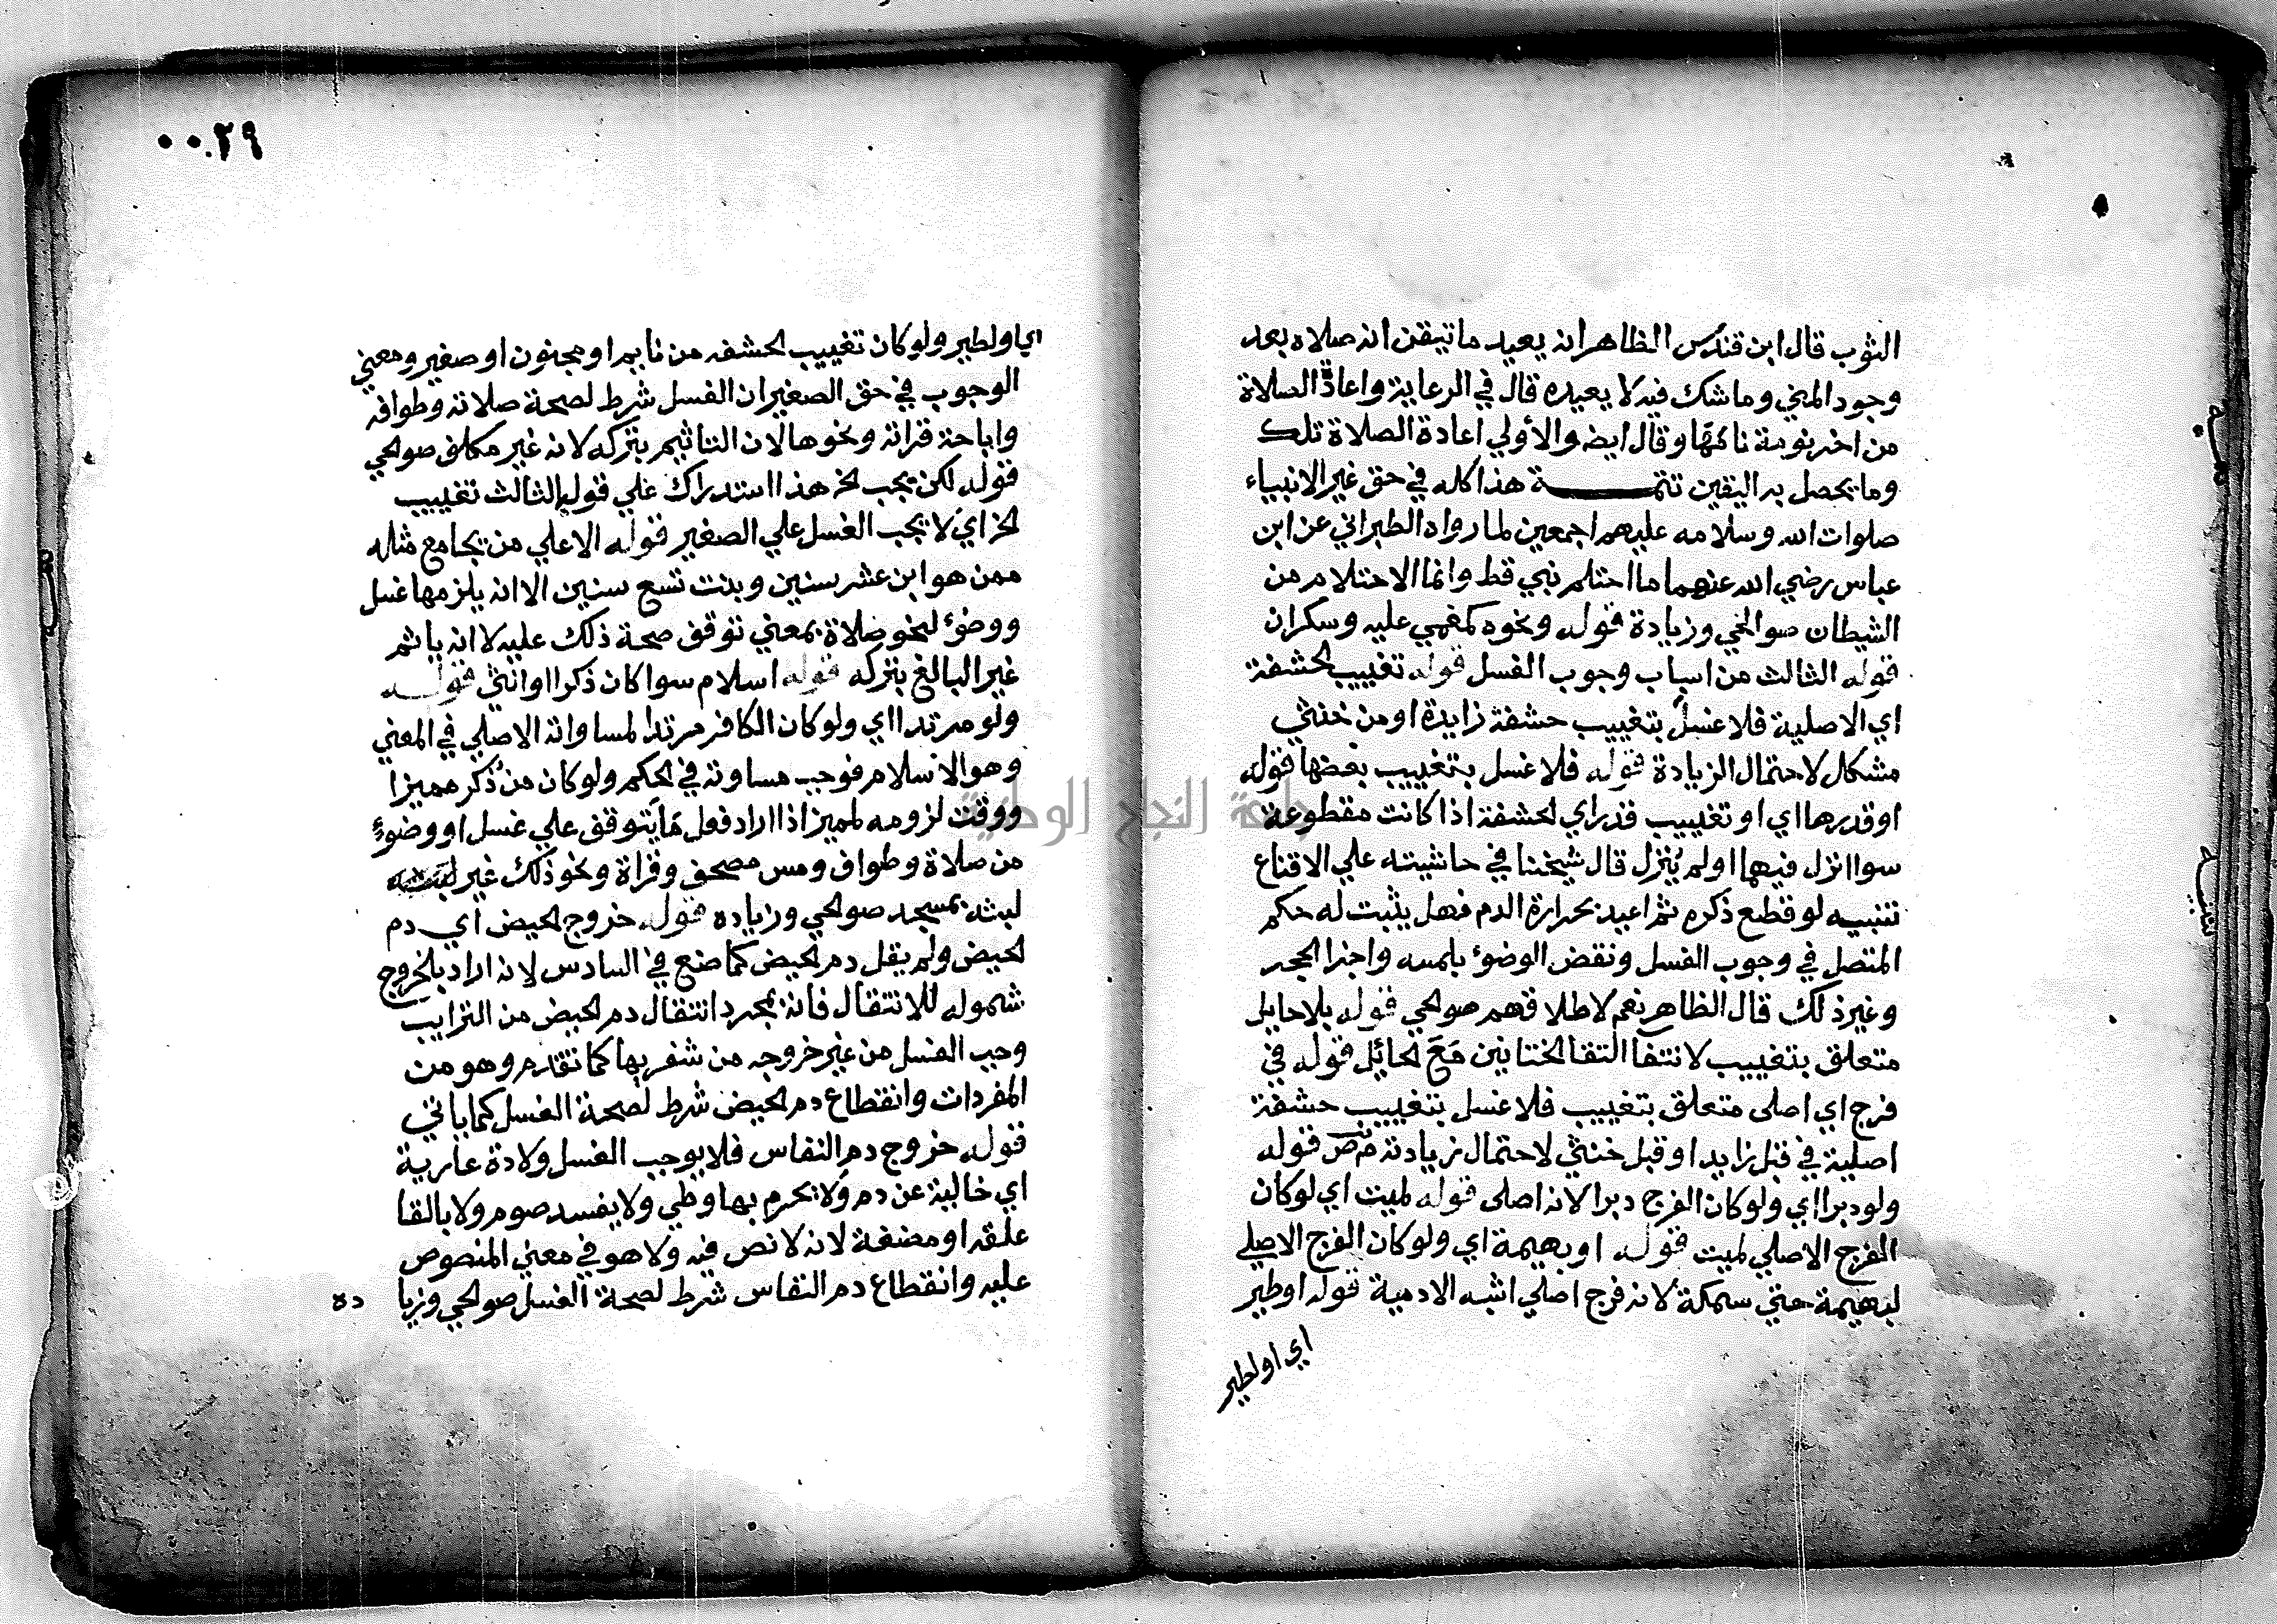 الثوب قال ابن قندس الظاهر انه يعيد ما تيقن انه صلاه بعد
وجود المني وما شك فيه لا يعيده قال في الرعاية واعادة الصلاة
من اخر نومة نامها وقال ايضا والأولي اعادة الصلاة تلك
وما يحصل به اليقين تتمة هذا كله في حق غير الانبياء
صلوات الله وسلامه عليهم اجمعين لما رواه الطبراني عن ابن
عباس رضي الله عنهما ما احتلم نبي قط وانما الاحتلام من
الشيطان صوالحي وزيادة قوله ونحوه كمغمي عليه وسكران
قوله الثالث من اسباب وجوب الغسل قوله تغييب لحشفة
اي الاصلية فلا غسل بتغييب حشفة زايدة او من خنثي
مشكل لاحتمال الزيادة قوله فلا غسل بتغييب بعضها قوله
او قدرها اي او تغييب قدر اي لحشفة اذا كانت مقطوعة
سوا انزل فيهما او لم ينزل قال شيخنا في حاشيته علي الاقناع
تنبيه لو قطع ذكره ثم اعيد بحرارة الدم فهل يثبت له حكم
المتصل في وجوب الغسل ونقض الوضوء بلمسه واجزا الحجر
وغير ذلك قال الظاهر نعم لاطلاقهم صوالحي قوله بلا حايل
متعلق بتغييب لانتفا التقا لختانين مع لحائل قوله في
فرج اي اصلى متعلق بتغييب فلا غسل بتغييب حشفة
اصلية في قبل زايد او قبل خنثي لاحتمال زيادته م ص قوله
ولو دبرا اي ولو كان الفرج دبرا لانه اصلى قوله لميت اي لو كان
الفرج الاصلي لميت قوله او بهيمة اي ولو كان الفرج الاصلي
لبهيمة حتي سمكة لانه فرج اصلي اشبه الادمية قوله او طير
اي او لطير
٠٠٢٩
اي او لطير ولو كان تغييب لحشفه من نايم او مجنون او صغير ومعني
الوجوب في حق الصغير ان الغسل شرط لصحة صلاته وطوافه
واباحة قراته ونحوها لا ان التاثيم بتركه لانه غير مكلف صوالحي
قوله لكن يجب لخ هذا استدراك علي قوله الثالث تغييب
لخ اي لا يجب الغسل علي الصغير قوله الا علي من يجامع مثله
ممن هو ابن عشر سنين وبنت تسع سنين الا انه يلزمها غسل
ووضؤ لنحو صلاة بمعني توقف صحة ذلك عليه لا انه ياثم
غير البالغ بتركه قوله اسلام سوا كان ذكرا او انثي قوله
ولو مرتدا اي ولو كان الكافر مرتدا لمساواته الاصلي في المعني
وهو الاسلام فوجب مساوته في لحكم ولو كان من ذكر مميزا
ووقت لزومه لمميز اذا اراد فعل ما يتوقف علي غسل او وضوء
من صلاة وطواف ومس مصحف وقراة ونحو ذلك غير
لبثه بمسجد صوالحي وزياده قوله خروج لحيض اي دم
لحيض ولم يقل دم لحيض كما صنع في السادس لانه اراد بالخروج
شموله للانتقال فانه بمجرد انتقال دم لحيض من الترايب
وجب الغسل من غير خروجه من شفريها كما تقدم وهو من
المفردات وانقطاع دم لحيض شرط لصحة الغسل كما ياتي
قوله خروج دم النفاس فلا يوجب الغسل ولادة عارية
اي خالية عن دم ولا يحرم بها وطي ولا يفسد صوم ولا بالقا
علقه او مضغة لانه لا نص فيه ولا هو في معني المنصوص
عليه وانقطاع دم النفاس شرط لصحة الغسل صوالحي وزيا ده
جامعة النجاح الوطنية